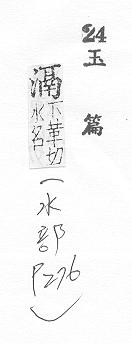 24
玉篇
滆下革切
水名
（水部
P276）